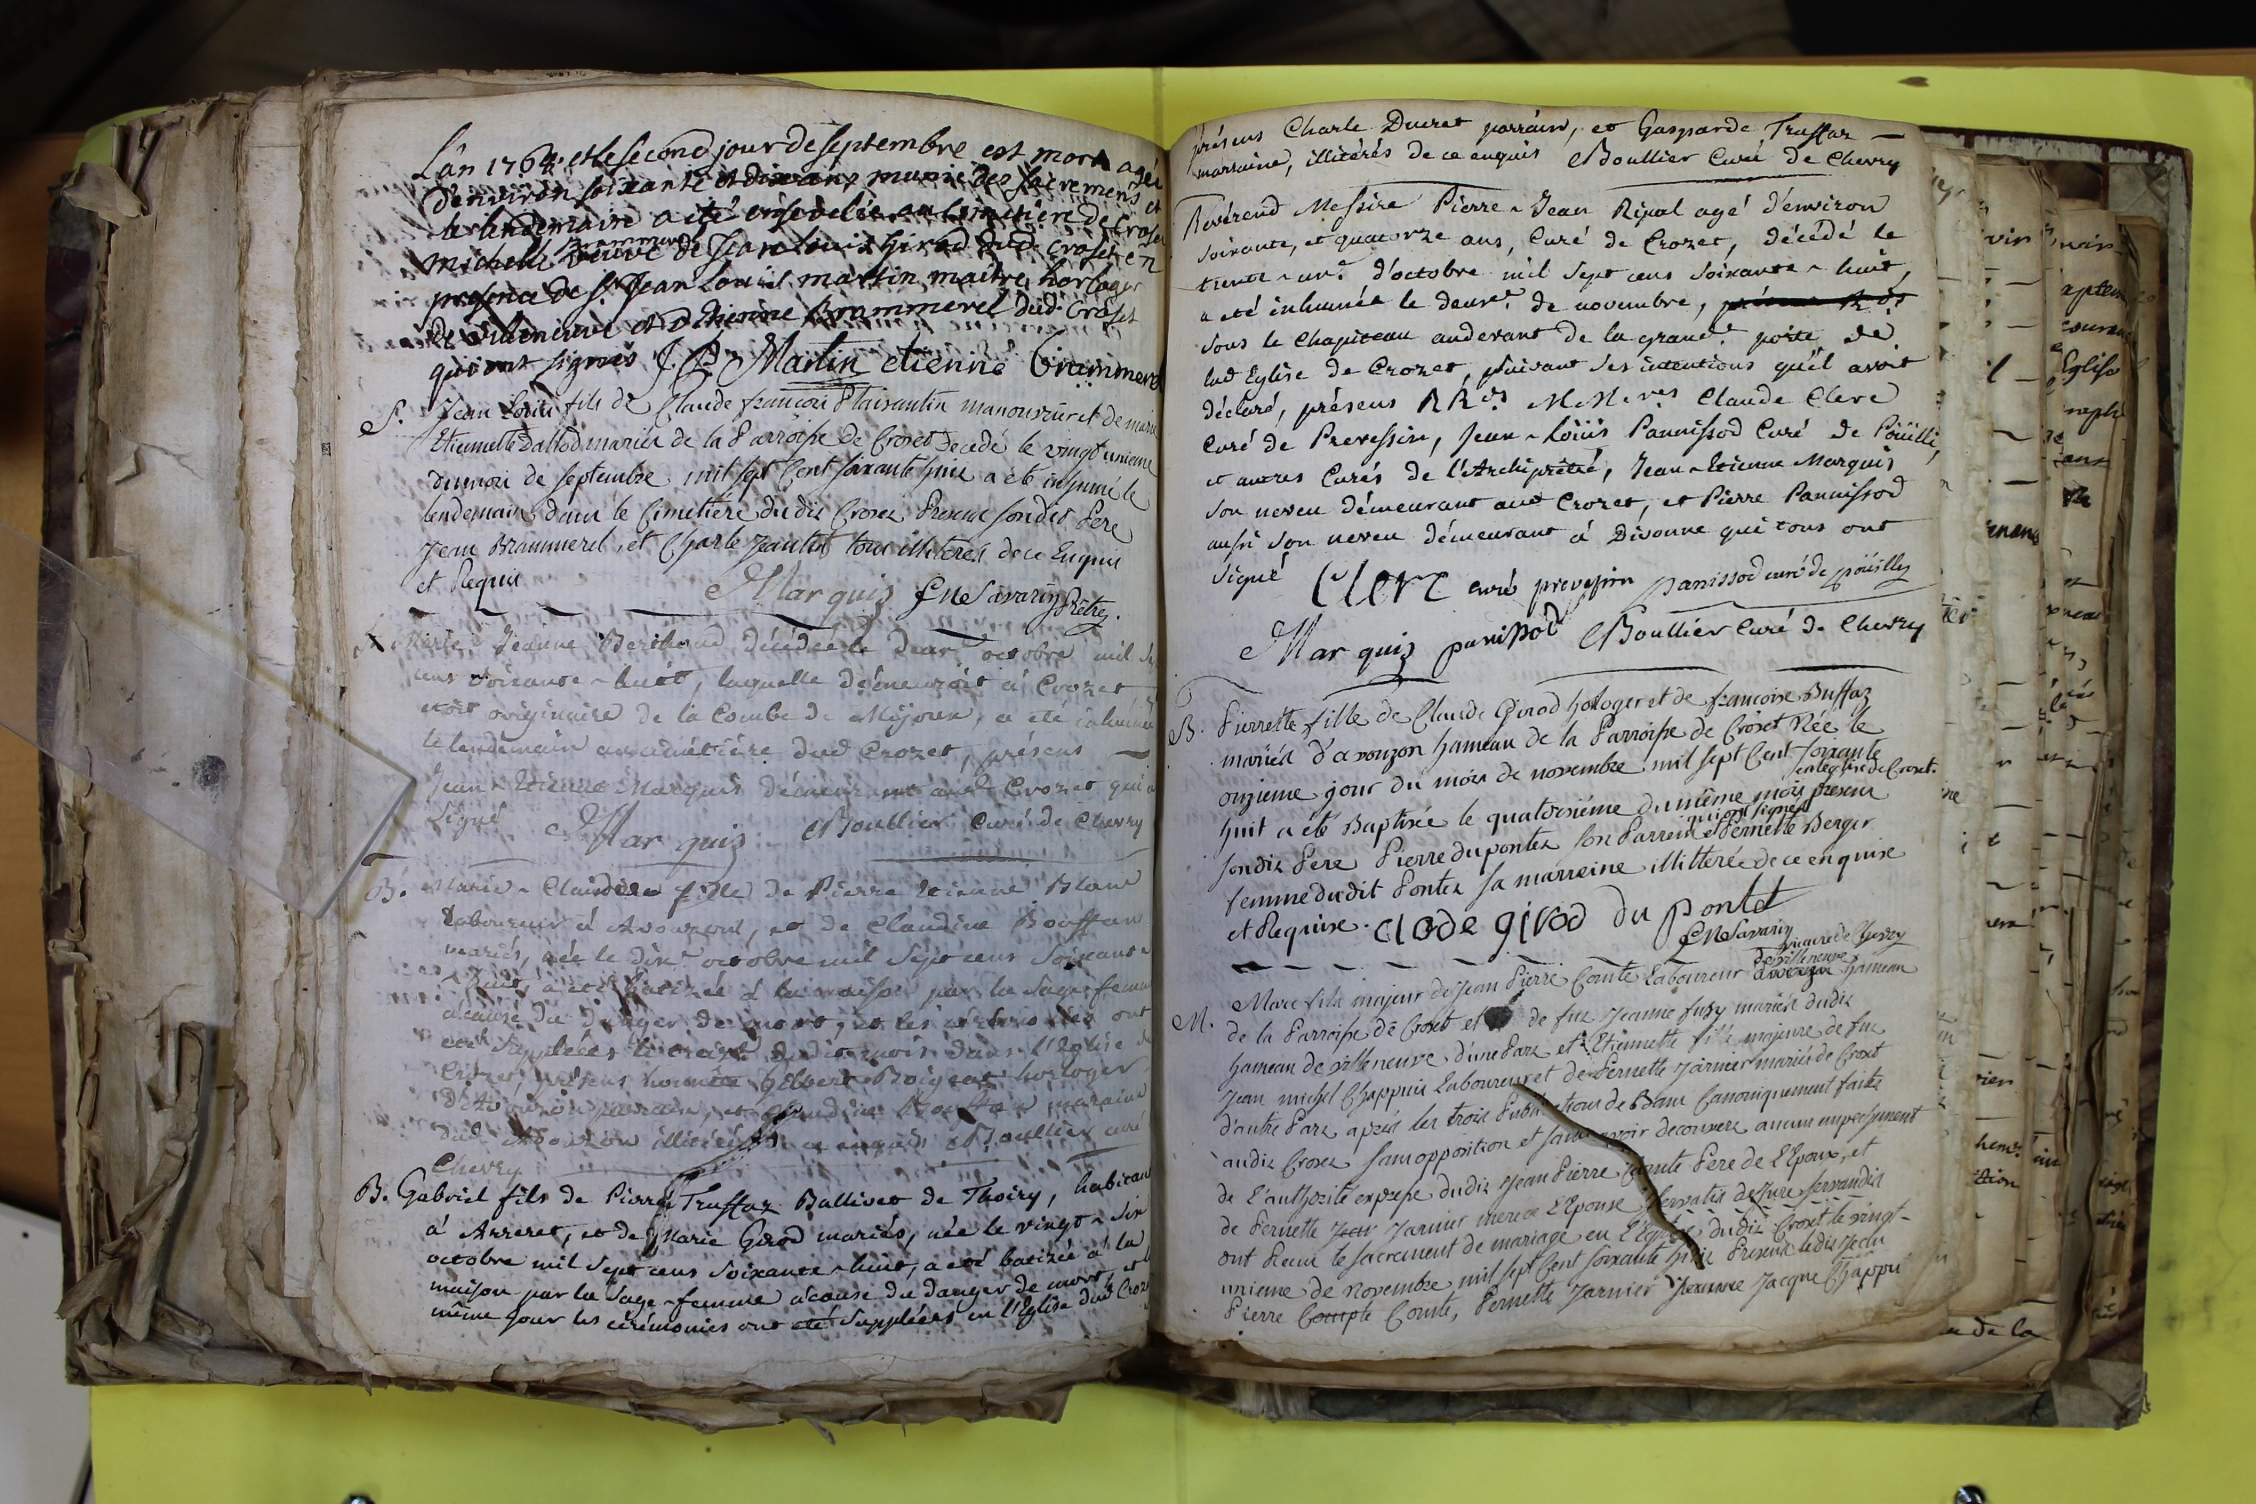 L'an 1768 et le second jour de septembre est morte agée
d'environ soixante et dix ans, munie des sacremens et
le lendemain a été ensevelie au cimetiere de Croset
michelle Brammerel veuve de Jean Louis Girod dud. Croset en
presence de Sr Jean Louis martin maitre horloger
de villeneuve et d'Etienne Brammerel dud. Croset
qui ont signés J P Martin etienne brammerel
S. Jean Louis fils de Claude francois Plaisantin manouvrier et de marie
Etiennette Dallod mariés de la Parroisse de Croset decedé le vingt unieme
du mois de septembre mil sept Cent soixante huit a été inhumé le
lendemain dans le Cimetiére dudit Croset Presens sondit Pere
Jean Brammerel, et Charle Jantet tous illiterés de ce Enquis
et Requis Marquis Savarin Prêtre.
Jeanne décédée le deuxe octobre mil
cens soixante-huit, laquelle démeuroit à Crozet
originaire de la Combe de Mijoux, a été inhumée
le lendemain au cimétiére dud Crozet, présens
Jean-Etienne Marquis démeurant aud Crozet qui a
signé Marquis Boullier Curé de Chevry
B. Marie-Claudine fille de Pierre Etienne Blanc
Laboureur à Avouzon, et de Claudine
mariés, née le dixe octobre mil sept cens soixante
huit, a été batizée à la maison par la sage femme
acause du danger de mort, et les cérémonies ont
été supplées le dudit mois dans l'Eglise de
Crozet, présens horloger
d'Avouzon parrain, et Claudine maraine
dud Avouzon illitérés de ce enquis Boullier curé
Chevry
B. Gabriel fils de Pierre Truffaz Ballivet de Thoiry, habitant
à Avreret, et de Marie Girod mariés, née le vingt-six
octobre mil sept cens soixante-huit, a été batizée à la
maison par la sage-femme acause du danger de mort, et le
même jour les cérémonies ont été supplées en l'Eglise dud Crozet
présens Charle Ducret parrain, et Gasparde Truffaz
marraine, illitérés de ce enquis Boullier Curé de Chevry
Révérend Messire Pierre-Jean Ripal agé d'environ
soixante, et quatorze ans, Curé de Crozet, décédé le
trente-une d'octobre mil sept cens soixante-huit,
a été inhumée le deuxe de novembre,
sous le Chapiteau audevant de la grande porte de
lad Eglise de Crozet, suivant ses intentions qu'il avoit
déclaré, présens RRds MM.res Claude Clerc
Curé de Prevessin, Jean-Loüis Panissod Curé de Poüilli,
et autres Curés de l'Archiprêtré, Jean-Etienne Marquis
son neveu démeurant aud Crozet, et Pierre Panissod
aussi son neveu démeurant à Divonne qui tous ont
signé Clerc curé prevessin panissod curé de poüilly
Marquis panissod Boullier Curé de Chevry
B. Pierrette fille de Claude Girod horloger et de francoise Buffaz
mariés d'avouzon hameau de la Parroisse de Croset Née le
onzieme jour du mois de novembre mil sept Cent soixante
en l'eglise de Croset.
huit a été Baptisée le quatorziéme du même mois presens
qui ont signés
sondit Pere Pierre duponter son Parrein et Pernette Berger
femme dudit Ponter sa marreine illitterée de ce enquise
et Requise. clode girod du pontet
Savarin vicaire de Chevry
de villeneuve
M. Marc fils majeur de Jean Pierre Comte Laboureur hameau
de la Parroisse de Croset et de fue Jeanne fusy mariés dudit
hameau de villeneuve d'une Part et Etiennette fille majeure de fue
Jean michel Chappuis Laboureur et de Pernette Jarnier mariés de Croset
d'autre Part après les trois Publications de Bans Canoniquement faites
audit Croset sans opposition et sans avoir decouvert aucun empechement
de l'authorité expresse dudit Jean Pierre Comte Pere de l'Epoux, et
de Pernette Jarnier mere de l'Epouse servatis de Jure servandis
ont Recu le sacrement de mariage en l'Eglise dudit Croset le vingt-
unieme de novembre mil sept Cent soixante huit Presens ledit Jean
Pierre Compte Comte, Pernette Jarnier Jacque Chappui